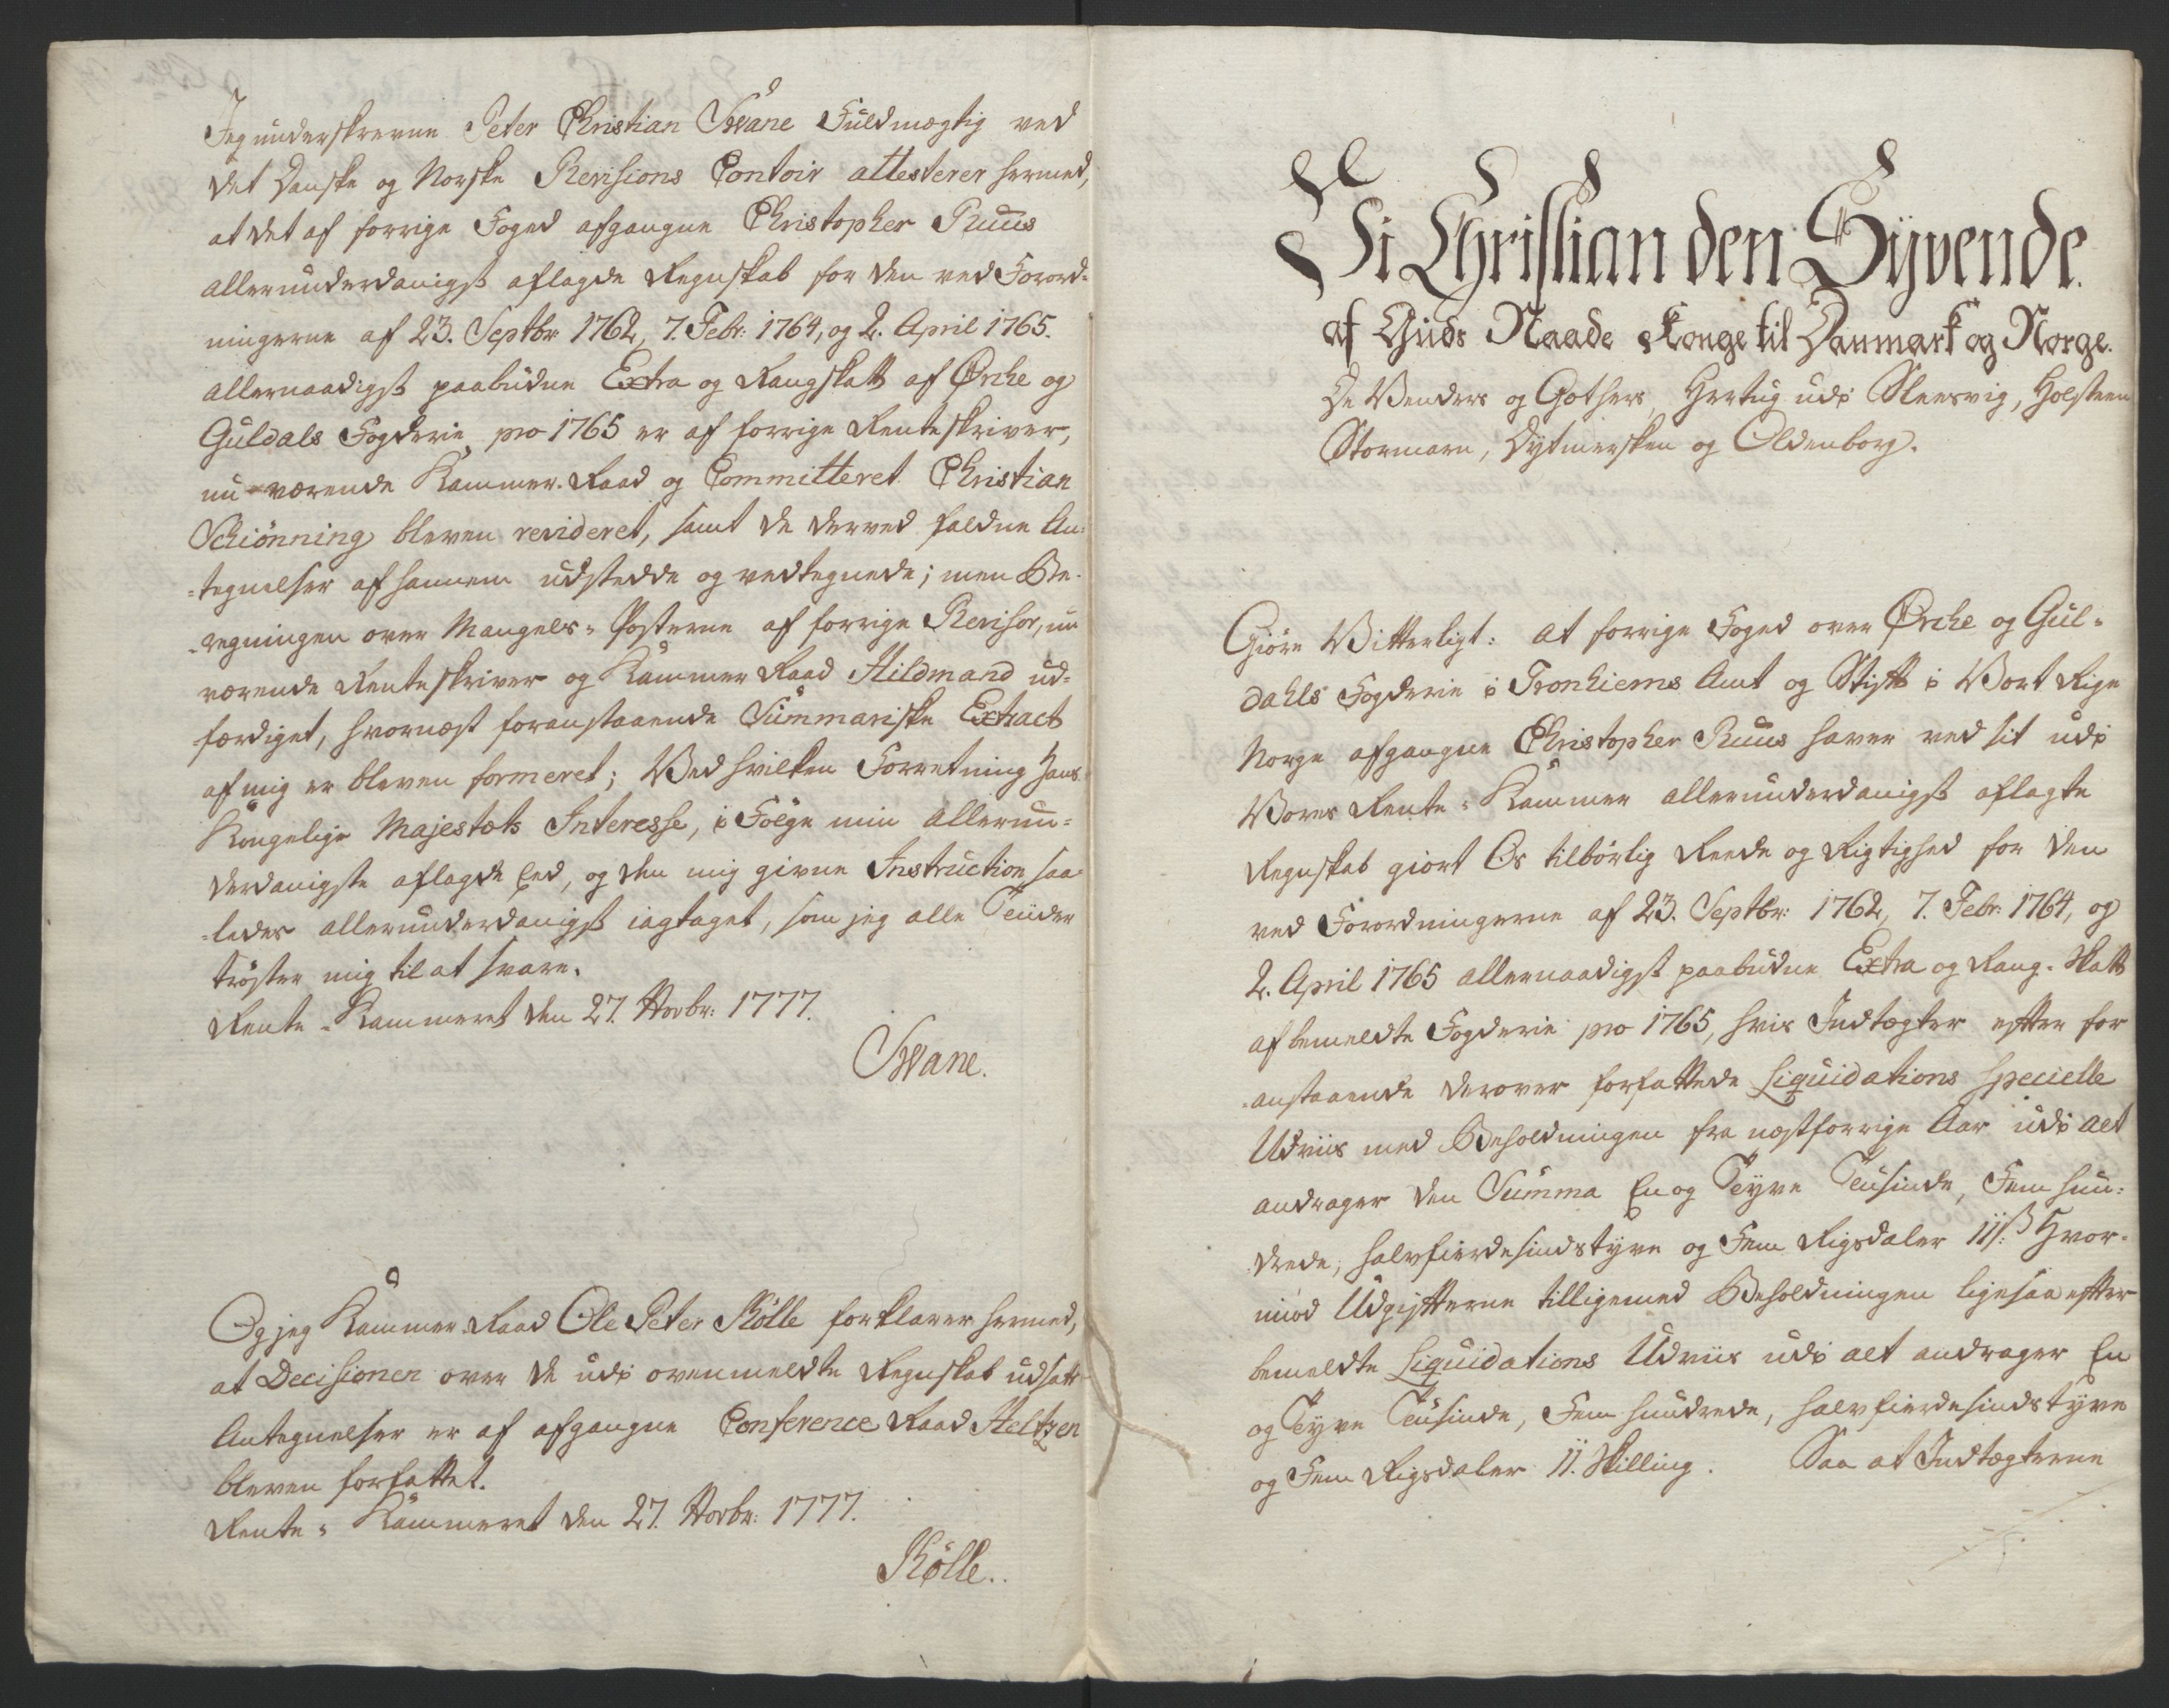 Jeg underskrevne Peter Christian Swane Fuldmægtig ved
det Danske og Norske Revisions Contoir attesterer hermed,
at det af forrige Foged afgangne Christopher Ruus
allerunderdanigst aflagde Regnskab for den ved Forord-
ningerne af 23. Septbr 1762, 7. Febr: 1764, og 2. April 1765.
allernaadigst paabudne Extra og Rangskatt af Ørche og
Guldals Fogderie pro 1765 er af forrige Renteskriver,
nu værende Kammer-Raad og Committeret Christian
Schiønning bleven revideret, samt de derved faldne An-
-tegnelser af hannem udstedde og vedtegnede; men Be-
-regningen over Mangels-Posterne af forrige Revisor, nu
værende Renteskriver og Kammer Raad Hildmand ud-
færdiget, hvornæst foranstaaende Summariske Extract
af mig er bleven formeret; Ved hvilken Forretning Hans
Kongelige Majestæts Interesse, i Følge min allerun-
derdanigste aflagde Eed, og den mig givne Instruction saa-
-ledes allerunderdanigst iagtaget, som jeg alle Tiider
trøster mig til at svare.
Rente-Kammeret den 27. Novbr: 1777.
Swane.
Og jeg Kammer Raad Ole Peter Kølle forklarer hermed,
at Decisionen over de udi ovenmeldte Regnskab udsatte
Antegnelser er af afgangne Conference Raad Heltzen
bleven forfattet.
Rente-Kammeret den 27. Novbr: 1777.
Kølle.
Vi Christian den Syvende.
af Guds Naade Konge til Danmark og Norge.
De Venders og Gothers, Hertug udi Sleesvig, Holsteen
Stormarn, Dytmersken og Oldenborg.
Giøre Vitterligt: at forrige Foged over Ørche og Gul-
dahls Fogderie i Tronhiems Amt og Stift i Vort Rige
Norge afgangne Christopher Ruus haver ved sit udi
Vores Rente-Kammer allerunderdanigst aflagte
Regnskab giort Os tilbørlig Reede og Rigtighed for den
ved Forordningerne af 23. Septbr: 1762, 7. Febr: 1764, og
2. April 1765 allernaadigst paabudne Extra og Rang-Skatt
af bemeldte Fogderie pro 1765, hvis Indtægter efter for
-anstaaende derover forfattede Liquidations specielle
Udviis med Beholdningen fra næstforrige Aar udi alt
andrager den Summa En og Tyve Tusinde, Fem hun-
drede, halvfierdesindstyve og Fem Rigsdaler 11 ß. Hvor-
imod Udgifterne tilligemed Beholdningen ligesaa efter
bemeldte Liquidations Udviis udi alt andrager En
og Tyve Tusinde, Fem hundrede, halvfierdesindstyve
og Fem Rigsdaler 11. Skilling. Saa at Indtægterne